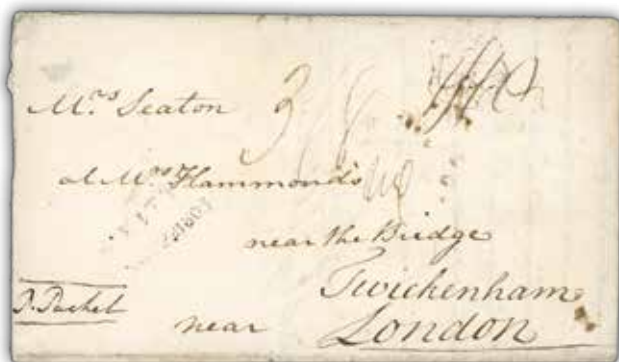 Mrs Seaton 3/8
at Mrs Hammond's
near the Bridge
Twickenham
P. Packet
near London